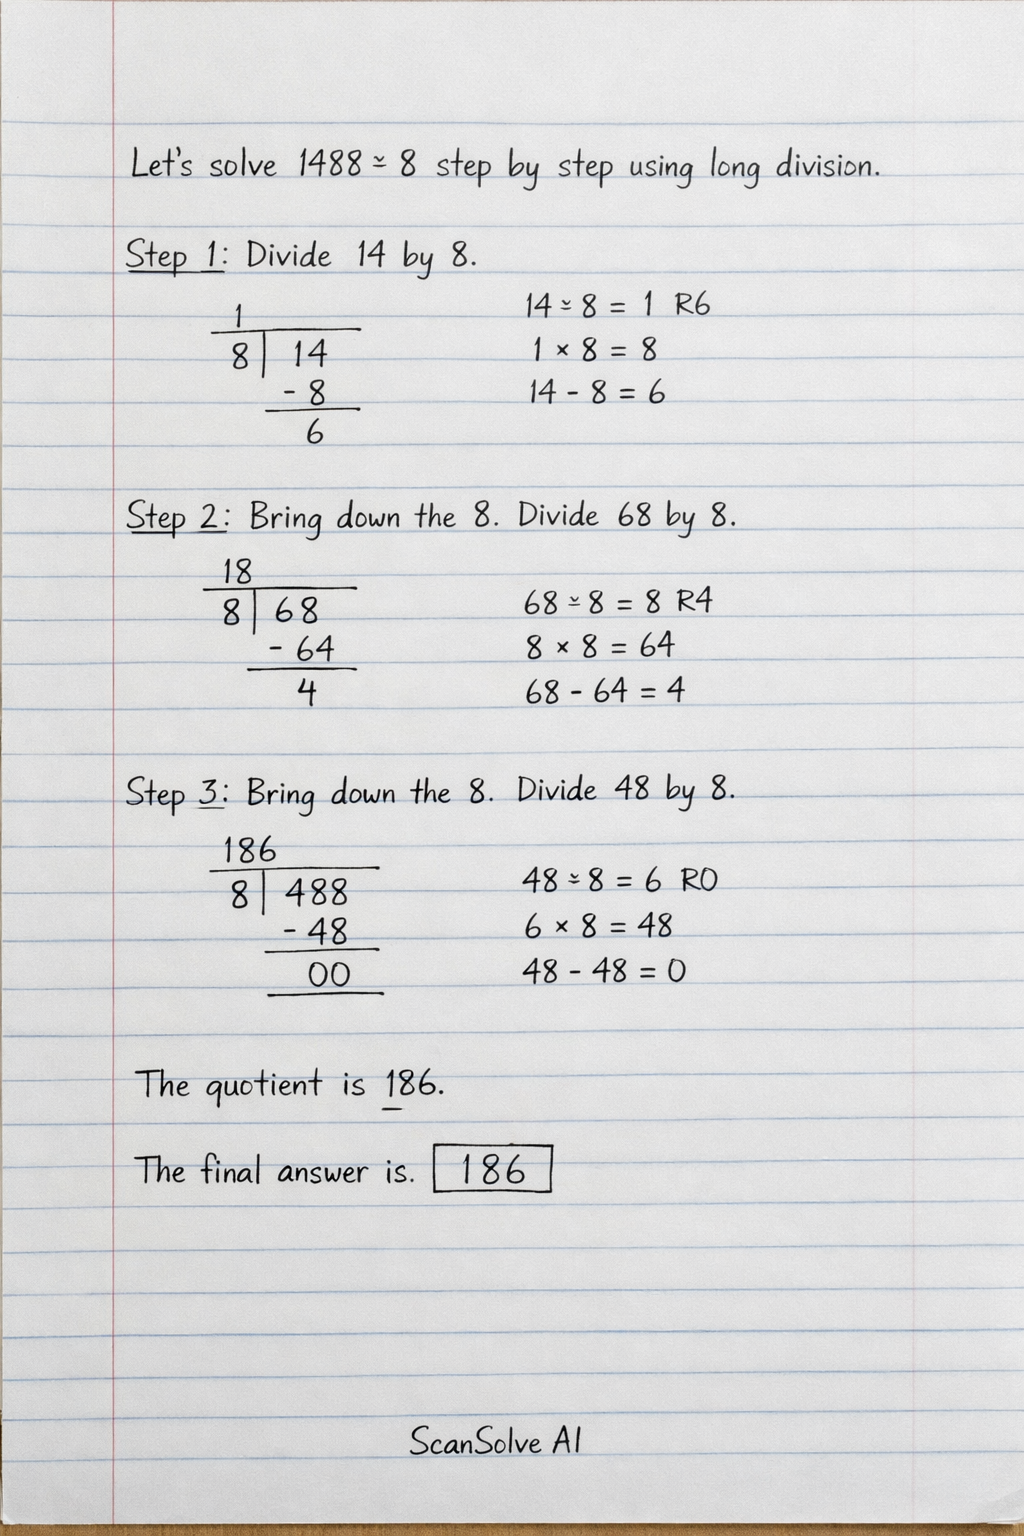 Let's solve 1488 ÷ 8 step by step using long division.
Step 1: Divide 14 by 8.
1
8 14
- 8
6
14 ÷ 8 = 1 R6
1 × 8 = 8
14 - 8 = 6
Step 2: Bring down the 8. Divide 68 by 8.
18
8 68
- 64
4
68 ÷ 8 = 8 R4
8 × 8 = 64
68 - 64 = 4
Step 3: Bring down the 8. Divide 48 by 8.
186
8 488
- 48
00
48 ÷ 8 = 6 R0
6 × 8 = 48
48 - 48 = 0
The quotient is 186.
The final answer is. 186
ScanSolve AI